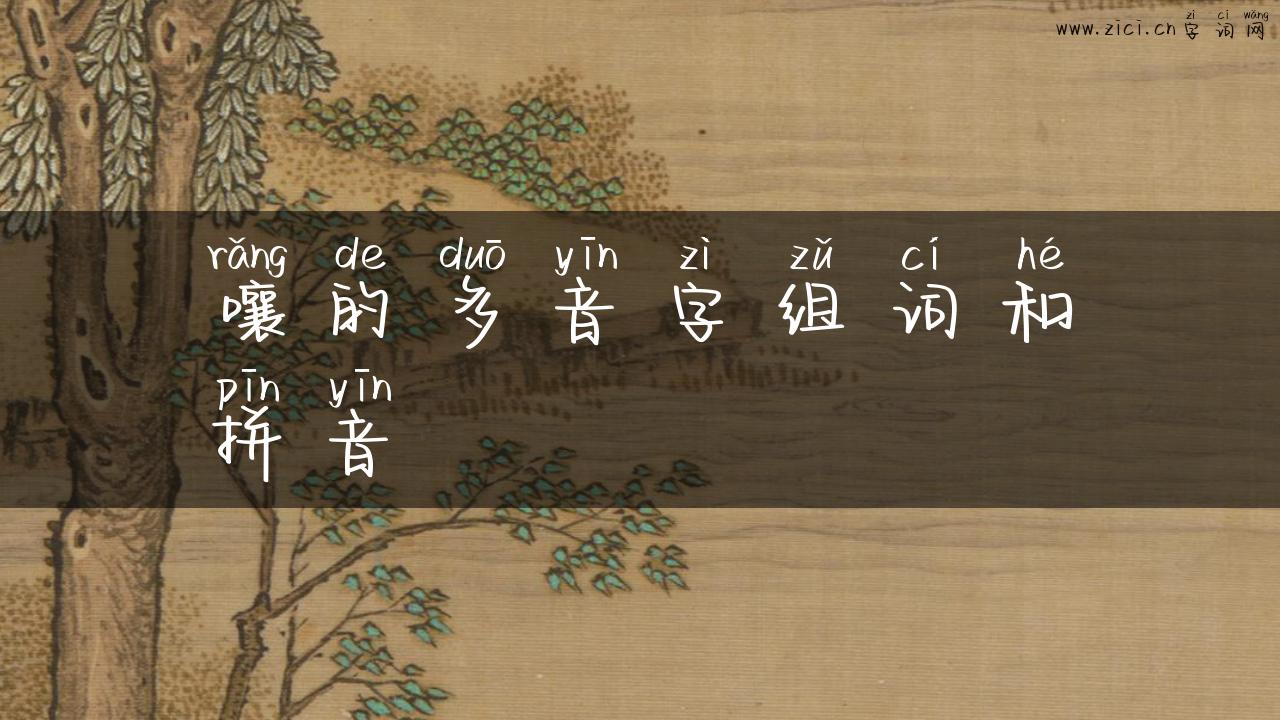 zì cí wǎng
www.zici.cn 字词网
rǎng de duō yīn zì zǔ cí hé
嚷的多音字组词和
pīn yīn
拼音